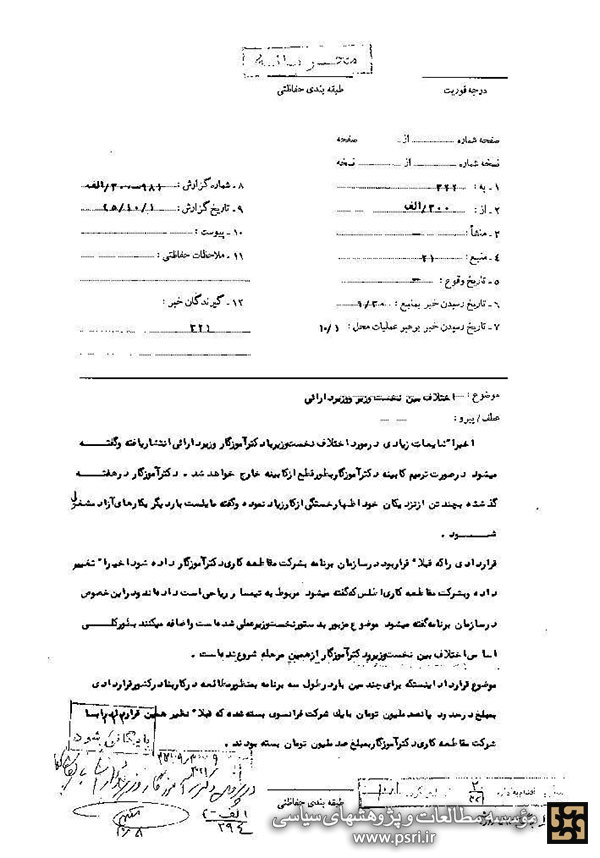 محرمانه
درجه فوریت
طبقه بندی حفاظتی
صفحه شماره از صفحه
نسخه شماره از نسخه
۱ـ به : ۳۲۲
۲ـ از : ۳۰۰/الف
۳ـ منشأ :
۴ـ منبع : ۲۱
۵ـ تاریخ وقوع :
۶ـ تاریخ رسیدن خبر بمنبع : ۹/۳۰
۷ـ تاریخ رسیدن خبر برهبر عملیات محل : ۱۰/۱
۸ـ شماره گزارش :
۹ـ تاریخ گزارش : ۴۵/۱۰/۱
۱۰ـ پیوست :
۱۱ـ ملاحظات حفاظتی :
۱۲ـ گیرندگان خبر :
۳۲۱
موضوع : اختلاف بین نخست وزیر ووزیردارائی
عطف/پیرو :
اخیرا" شایعات زیادی درمورد اختلاف نخست‌وزیربادکترآموزگار وزیردارائی انتشاریافته وگفته
میشود درصورت ترمیم کابینه دکترآموزگاربطورقطع ازکابینه خارج خواهد شد . دکترآموزگار درهفته
گذشته بچندتن ازنزدیکان خود اظهارخستگی ازکارزیاد نموده وگفته مایلست باردیگر بکارهای آزاد مشغول
شود .
قراردادی راکه قبلا" قراربود درسازمان برنامه بشرکت مقاطعه کاری دکترآموزگار داده شود اخیرا" تغییر
داده وبشرکت مقاطعه کاری که گفته میشود مربوط به تیمسار ریاحی است داده‌اند ودراین خصوص
درسازمان برنامه گفته میشود موضوع مزبور بدستور نخست‌وزیرعملی شده است واضافه میکنند بطورکلی
اساس اختلاف بین نخست‌وزیرودکترآموزگار ازهمین مرحله شروع شده است .
موضوع قرارداد اینستکه برای چندمین بار درطول سه برنامه بمنظورمطالعه درکاربنادرکشورقراردادی
بمبلغ درحدود پانصد ملیون تومان بایک شرکت فرانسوی بسته شده که قبلا" نظیر همین قرارداد رابا
شرکت مقاطعه کاری دکترآموزگاربمبلغ صد ملیون تومان بسته بودند .
بایگانی شود
طبقه بندی حفاظتی
مؤسسه مطالعات و پژوهشهای سیاسی
www.psri.ir